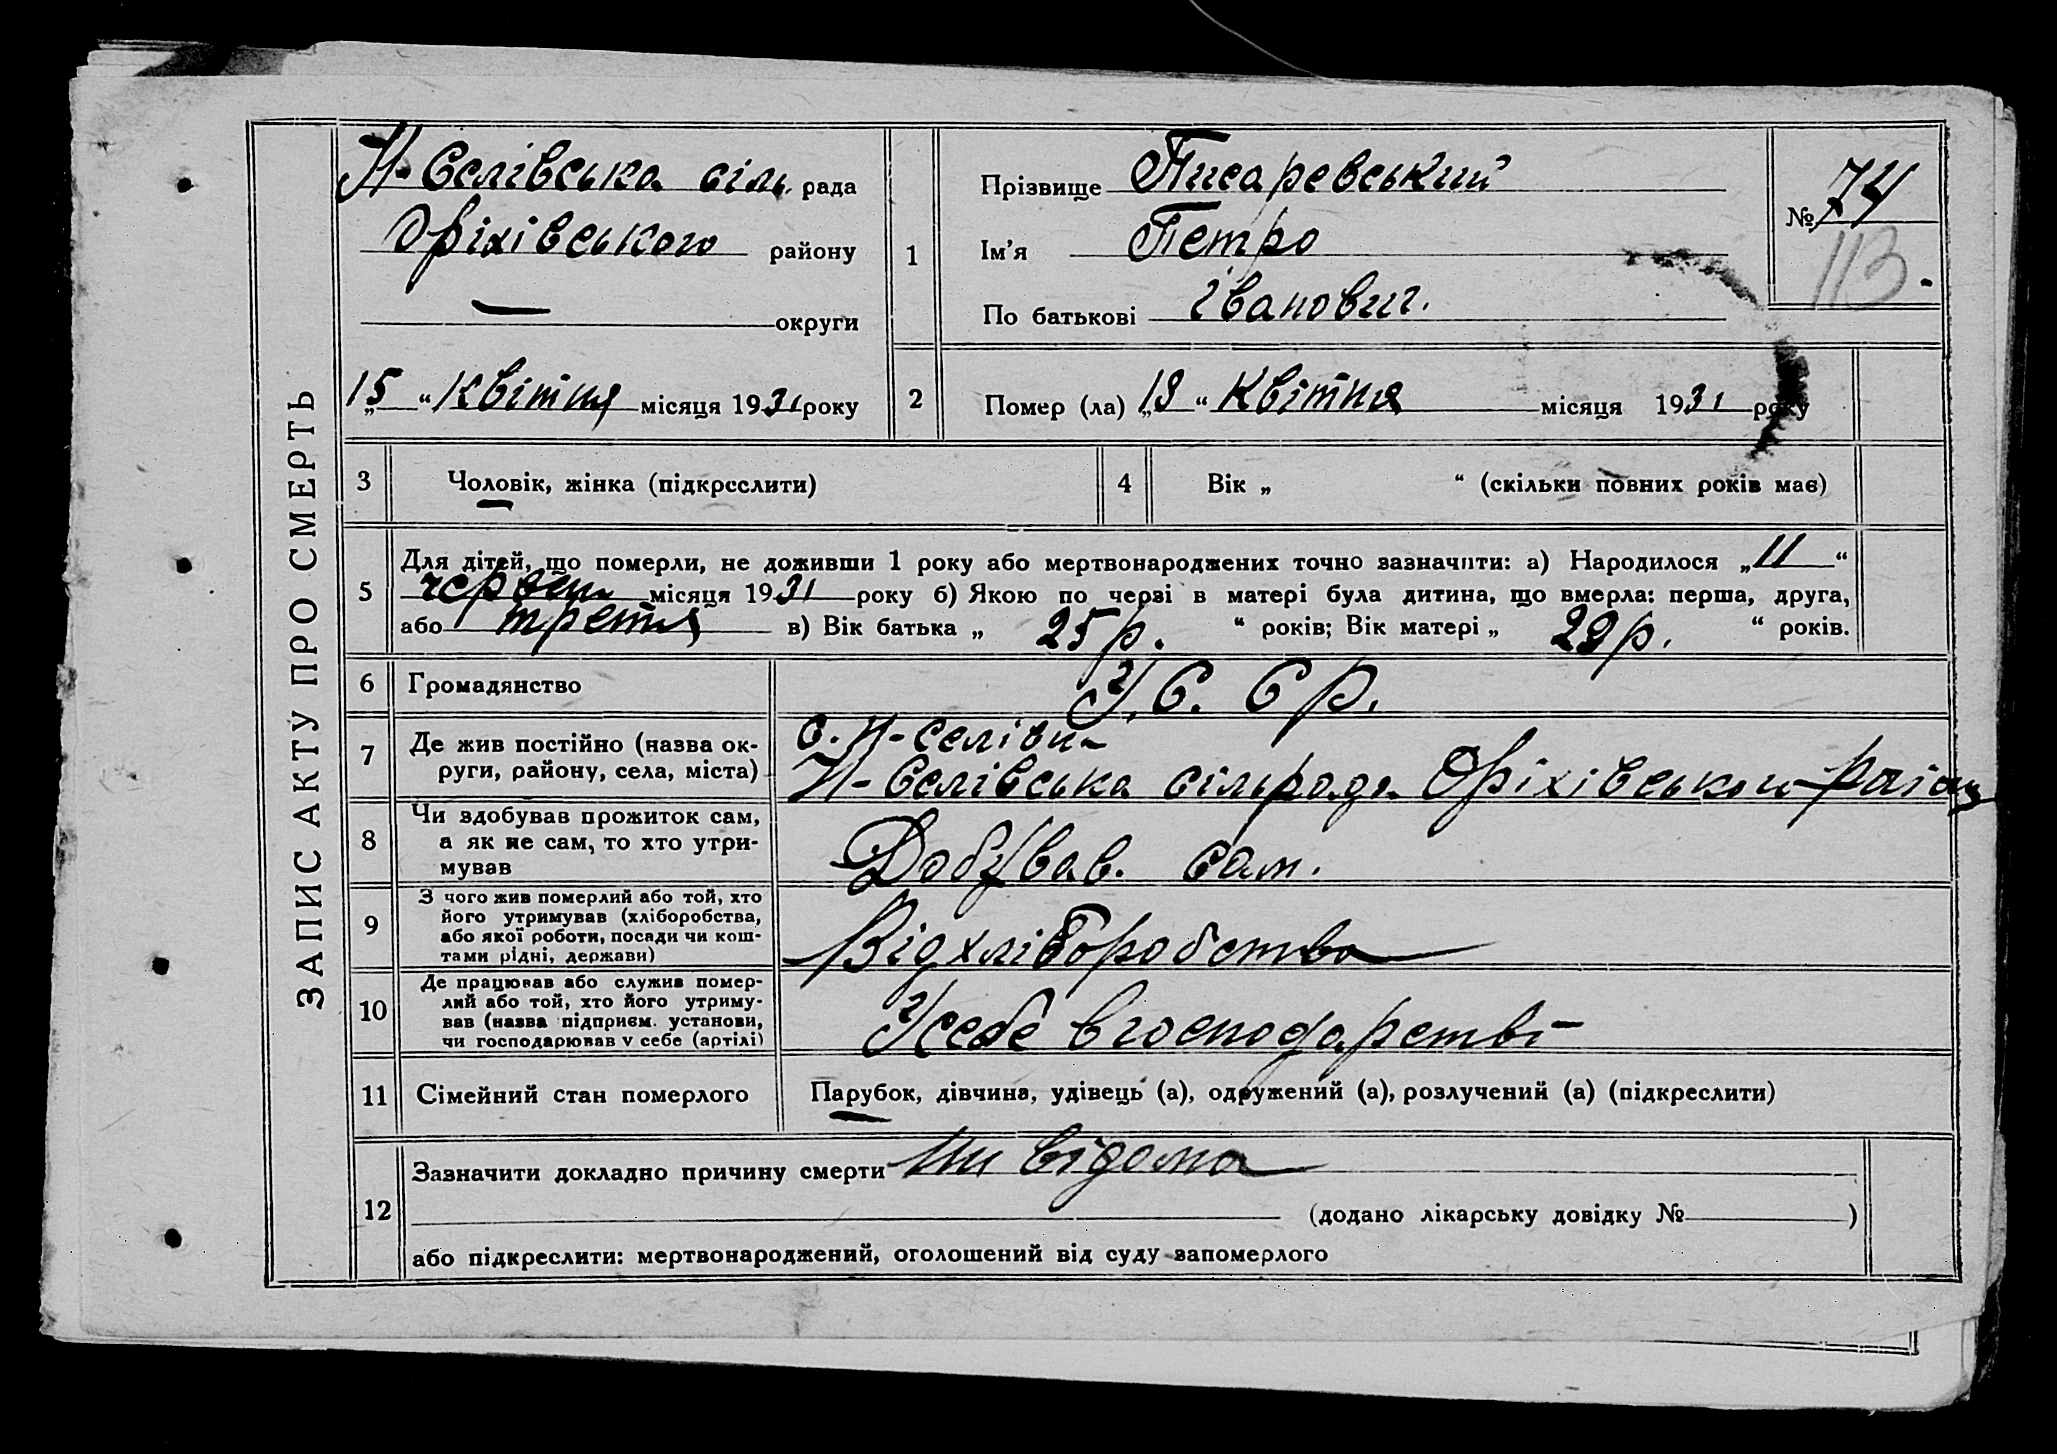 ЗАПИС АКТУ ПРО СМЕРТЬ
Н-Єєлівська сіль. рада
Оріхівського району
— округи
„15“ Квітня місяця 1931 року
1
Прізвище Писаревський
Ім'я Петро
По батькові Іванович.
№ 74
113.
2 Помер (ла) „13“ Квітня місяця 1931 року
3 Чоловік, жінка (підкреслити)
4 Вік „ “ (скільки повних років має)
5 Для дітей, що померли, не доживши 1 року або мертвонароджених точно зазначити: а) Народилося „11“
червня місяця 1931 року б) Якою по черзі в матері була дитина, що вмерла: перша, друга,
або третя в) Вік батька „ 25 р. “ років; Вік матері „ 29 р. “ років.
6 Громадянство У. С. С р.
7 Де жив постійно (назва ок-
руги, району, села, міста)
с. Н-селівка
Н-Селівська сільрада Оріхівського району
8 Чи здобував прожиток сам,
а як не сам, то хто утри-
мував
Добував. сам.
9 З чого жив померлий або той, хто
його утримував (хліборобства,
або якої роботи, посади чи кош-
тами рідні, держави)
Від хліборобства
10 Де працював або служив помер-
лий або той, хто його утриму-
вав (назва підприєм. установи,
чи господарював у себе (артілі)
У себе в господарстві
11 Сімейний стан померлого Парубок, дівчина, удівець (а), одружений (а), розлучений (а) (підкреслити)
12 Зазначити докладно причину смерти Ни відома
(додано лікарську довідку № )
або підкреслити: мертвонароджений, оголошений від суду запомерлого